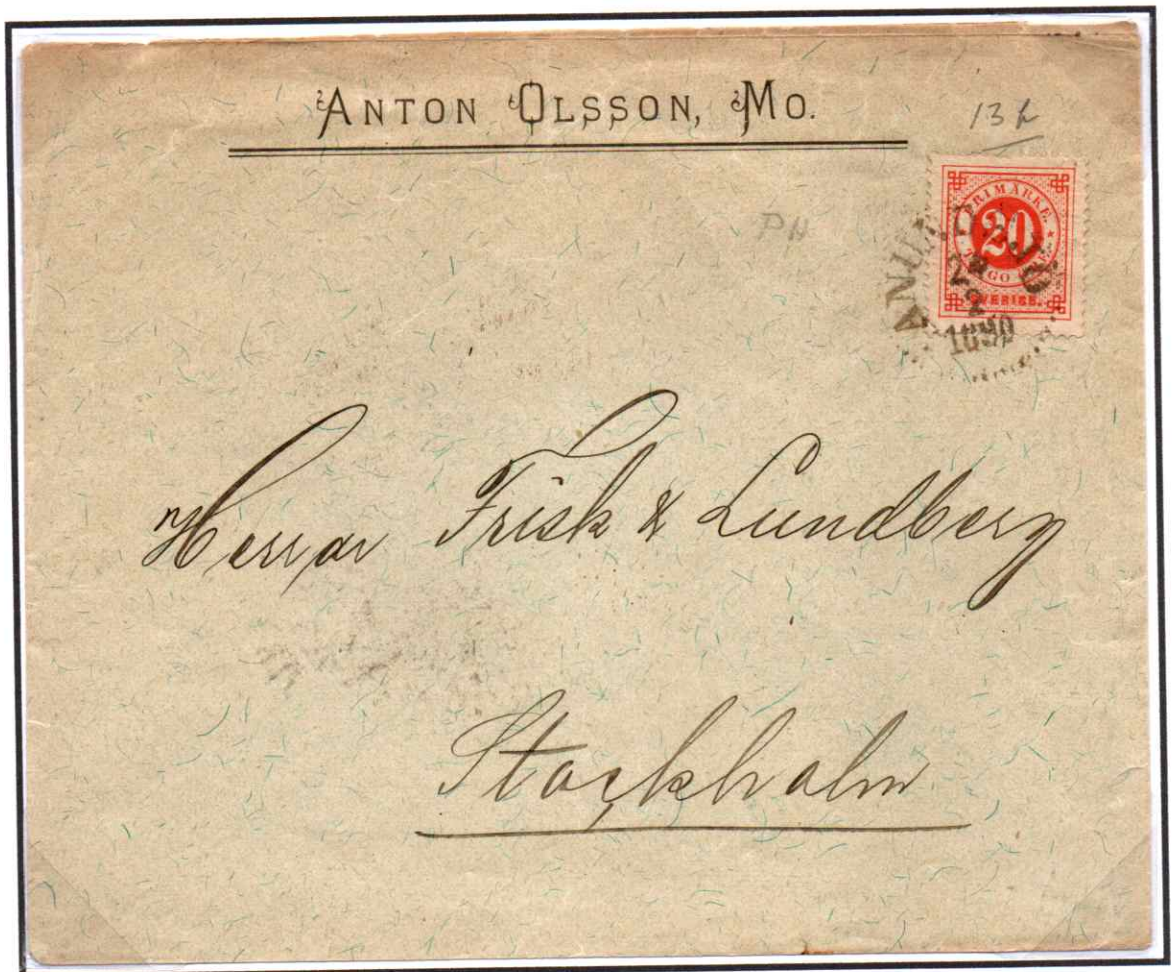 ANTON OLSSON, MO.
13 k
PH
FRIMÄRKE.
20
TJUGO ÖRE.
SVERIGE.
2
1890
Herrar Frisk & Lundberg
Stockholm